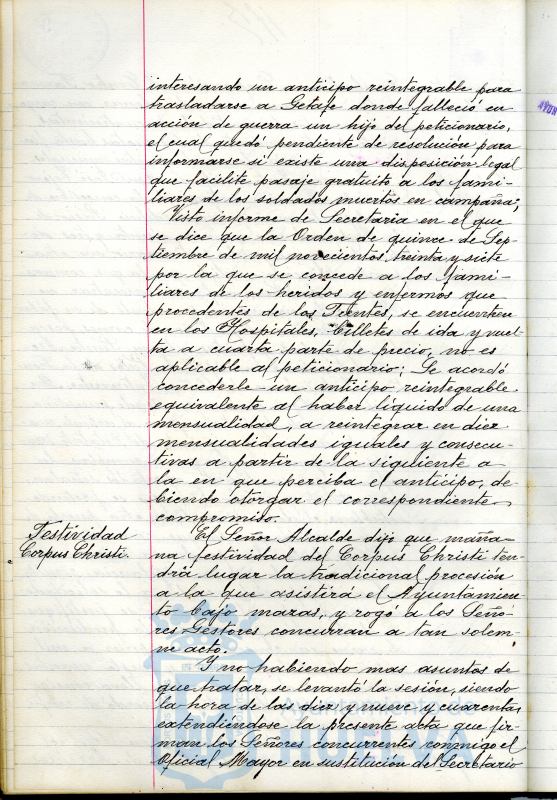 interesando un anticipo reintegrable para
trasladarse a Getafe donde falleció en
acción de guerra un hijo del peticionario,
el cual quedó pendiente de resolución para
informarse si existe una disposición legal
que facilite pasaje gratuito a los fami-
liares de los soldados muertos en campaña;
Visto informe de Secretaria en el que
se dice que la Orden de quince de Sep-
tiembre de mil novecientos treinta y siete
por la que se concede a los fami-
liares de los heridos y enfermos que
procedentes de los Frentes, se encuentren
en los Hospitales, billetes de ida y vuel-
ta a cuarta parte de precio, no es
aplicable al peticionario; Se acordó
concederle un anticipo reintegrable
equivalente al haber líquido de una
mensualidad, a reintegrar en diez
mensualidades iguales y consecu-
tivas a partir de la siguiente a
la en que perciba el anticipo, de-
biendo otorgar el correspondiente
compromiso.
Festividad
Corpus Christi.
El Señor Alcalde dijo que maña-
na festividad del Corpus Christi ten-
drá lugar la tradicional procesión
a la que asistirá el Ayuntamien-
to bajo mazas, y rogó a los Seño-
res Gestores concurran a tan solem-
ne acto.
Y no habiendo mas asuntos de
que tratar, se levantó la sesión, siendo
la hora de las diez y nueve y cuarenta,
extendiéndose la presente acta que fir-
man los Señores concurrentes conmigo el
Oficial Mayor en sustitución del Secretario